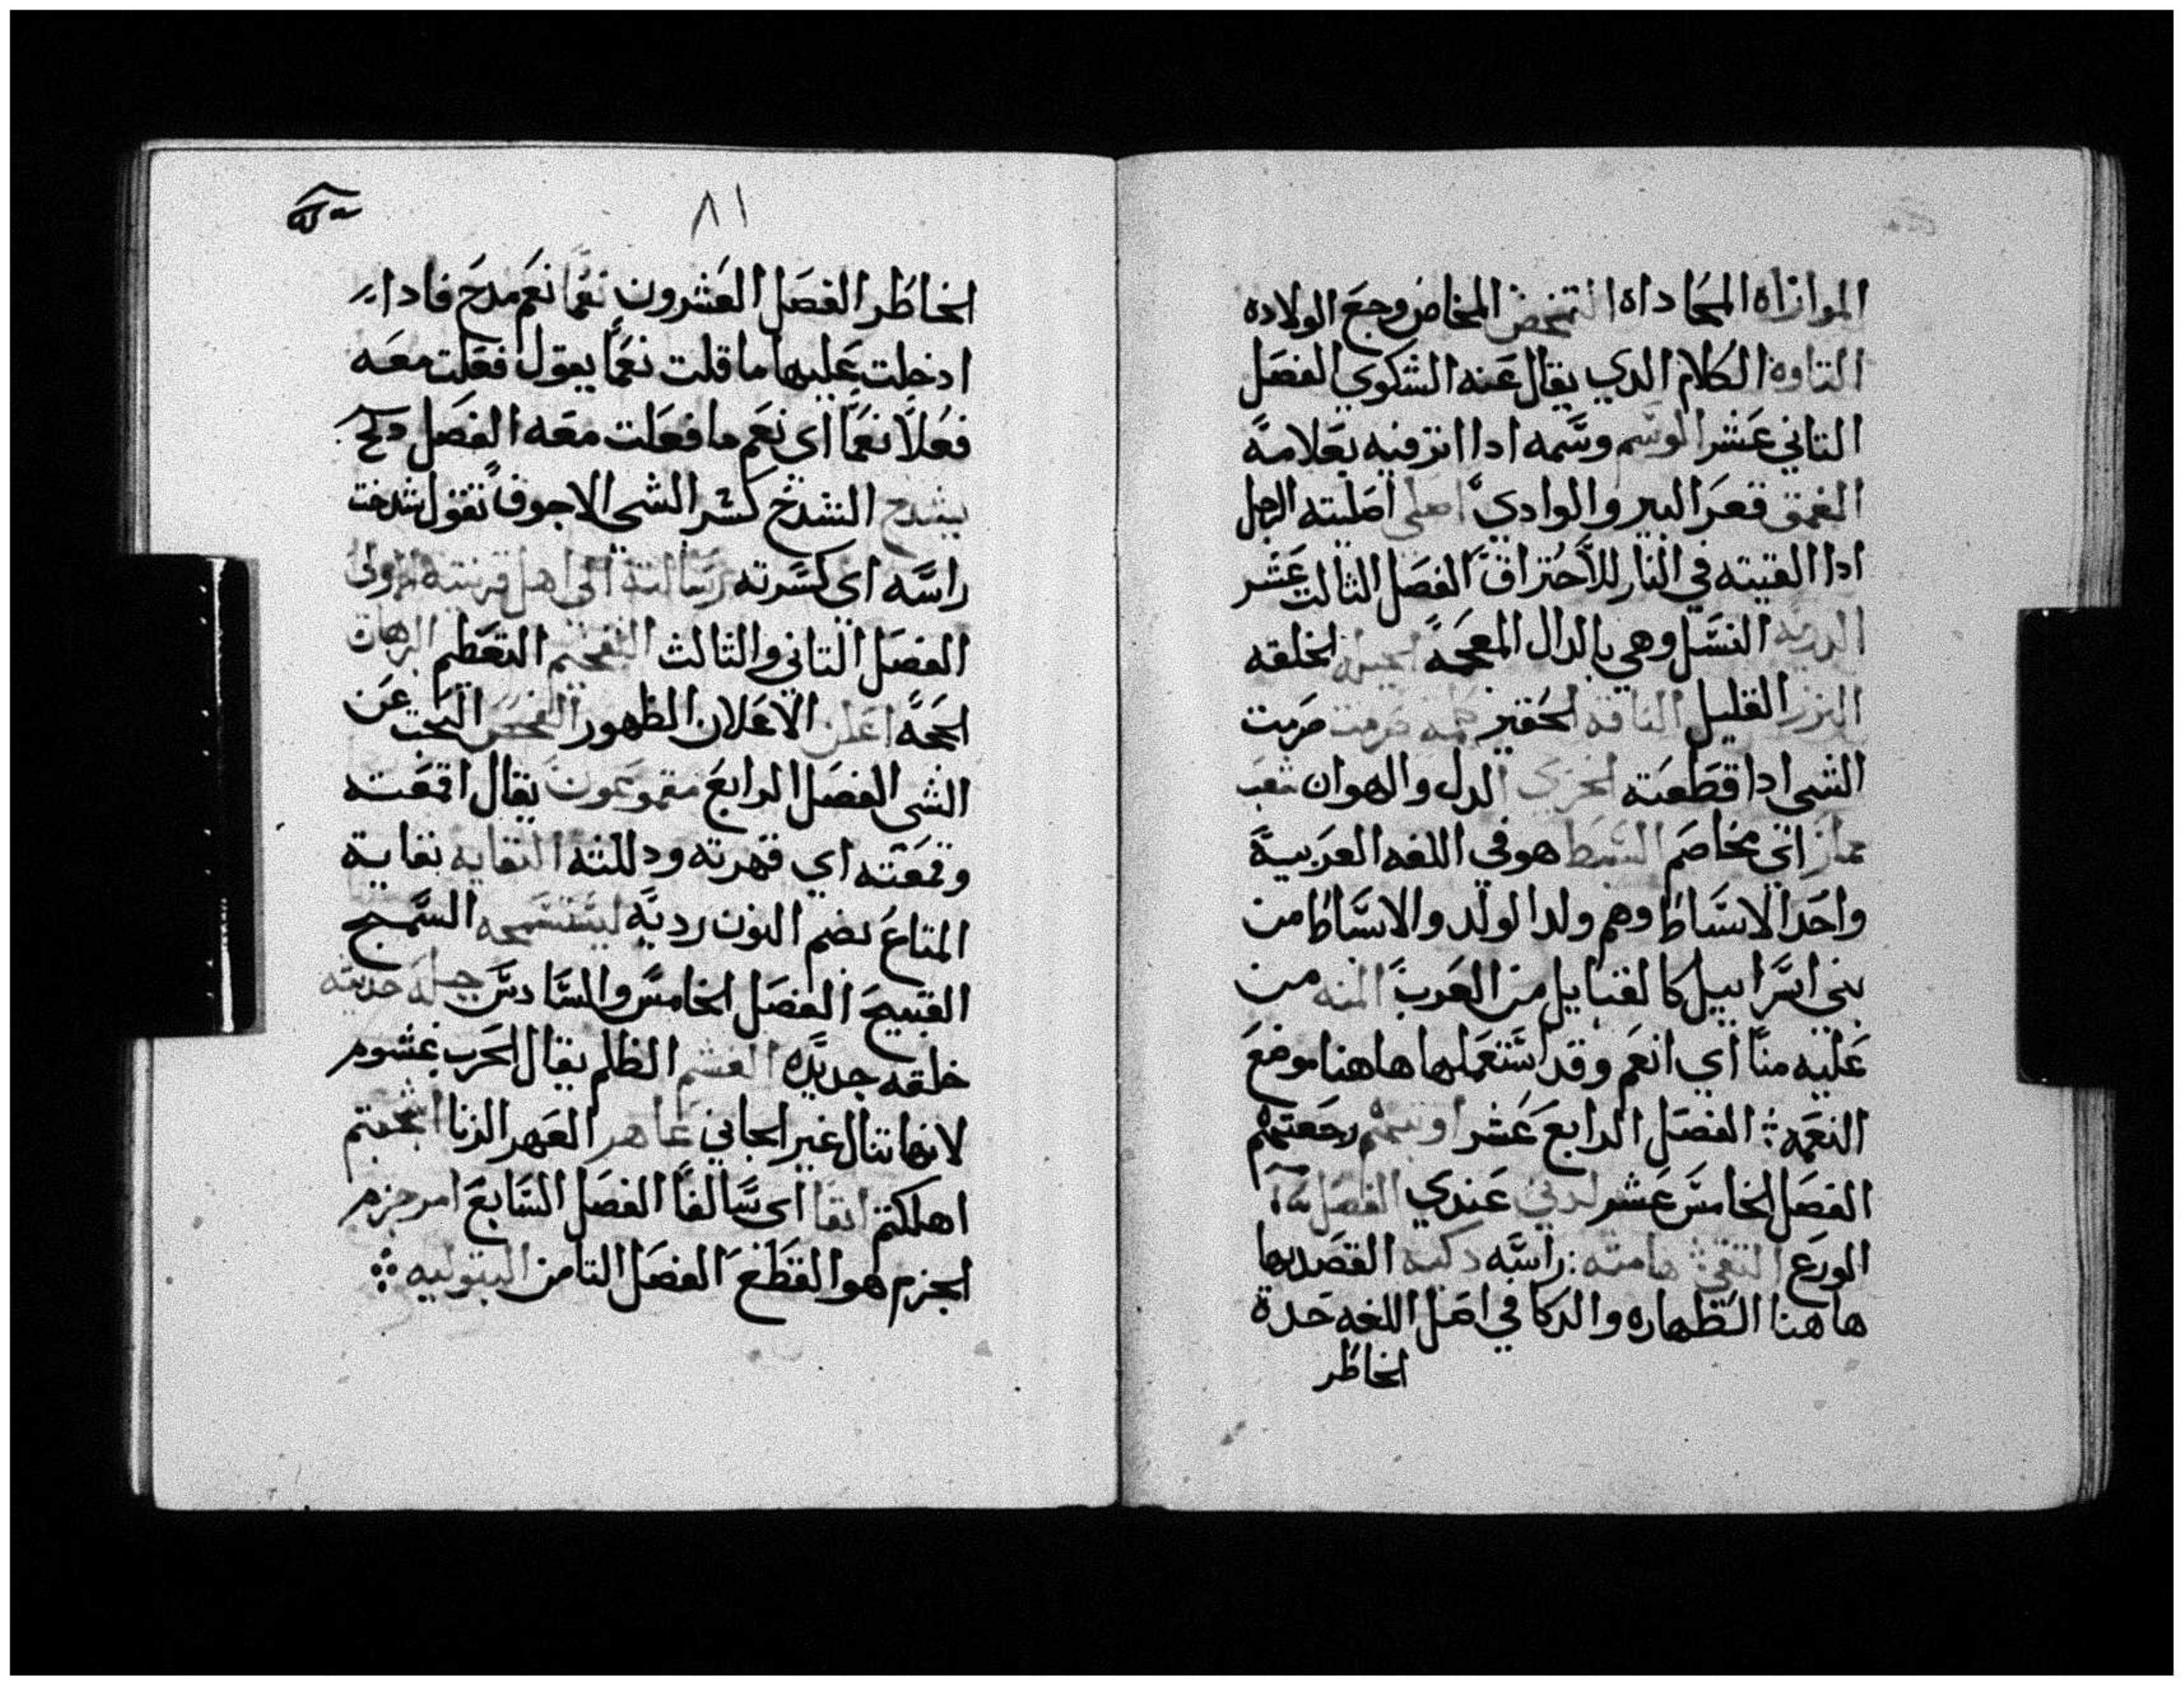 الموازاه المحاداه التمخض المخاض وجع الولاده
التاوه الكلام الدي يقال عنه الشكوي الفصل
التاني عشر الوسم وسمه ادا اترفيه بعلامة
العمق قعر البير والوادي اصلي اصليته الرجل
ادا القيته في النار للاحتراق الفصل الثالت عشر
الدريه النسل وهي بالدال المعجمة الجبله الخلقه
النزر القليل التافه الحقير صرمت صرمت
الشي ادا قطعته الخزي الدل والهوان شغب
مماز اني مخاصم السبط هو في اللغه العربية
واحد الاسباط وهم ولد الولد والاسباط من
بني اسراييل كالقبايل من العرب المنه من
عليه منا اي انعم وقد استعملها هاهنا موضع
النعمه الفصل الرابع عشر اويتم رجعتم
الفصل الخامس عشر لدني عندي الفصل
الورع التقي هامته راسه دكيه القصد بها
هاهنا الطهاره والدكا في اصل اللغه حدة
الخاطر
٨١
الخاطر الفصل العشرون نعما نعم مدح فادا
ادخلت عليها ما قلت نعما يقول فعلت معه
فعلا نعما اي نعم ما فعلت معه الفصل
يشدخ الشدخ كسر الشي الاجوف تقول شدخت
راسه اي كسرته رسالته الي اهل قرنتيه
الفصل التاني والتالث التفخيم التعظيم البرهان
الحجة اعلن الاعلان الظهور الفحص البحت عن
الشي الفصل الرابع مقموعون يقال اقمعته
وقمعته اي قهرته ودللته النفايه نفاية
المتاع بضم النون رديه ليستسمجه السمج
القبيح الفصل الخامس والسادس جبله حديثه
خلقه جديده الغشم الظلم يقال الحرب غشوم
لانها تنال غير الجاني عاهر العهر الزنا اجحتم
اهلكتم انفا اي سالفا الفصل السابع امر جزم
الجزم هو القطع الفصل التامن البتوليه